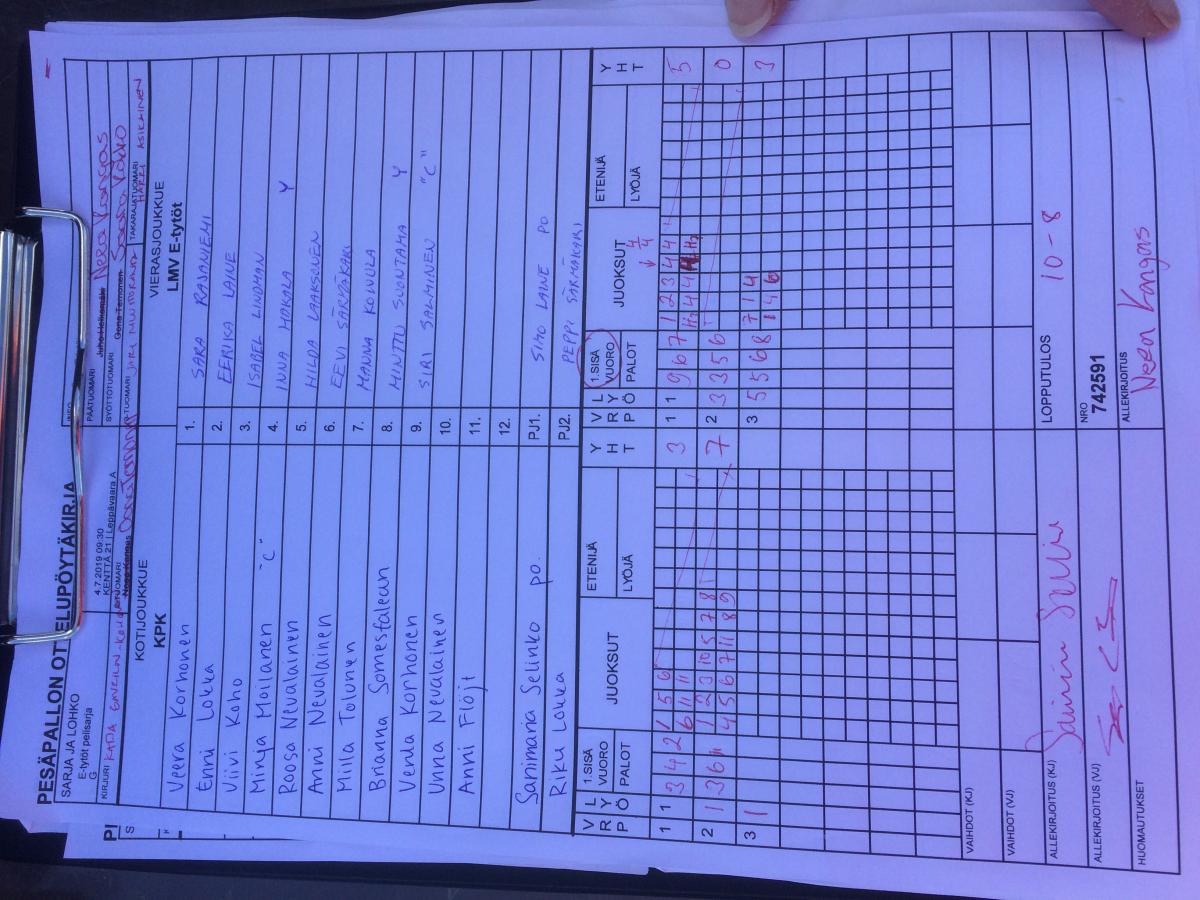 PESÄPALLON OTTELUPÖYTÄKIRJA
SARJA JA LOHKO
E-tytöt pelisarja
G
4.7.2019 09:30
KENTTÄ 21 | Leppävaara A
INFO
PÄÄTUOMARI
Nera Kangas
KIRJURI KATJA
SYÖTTÖTUOMARI
TAKARAJATUOMARI
HARRI ASIKAINEN
KOTIJOUKKUE
KPK
VIERASJOUKKUE
LMV E-tytöt
Veera Korhonen 1. SARA RAJANIEMI
Enni Lokka 2. EERIKA LAINE
Viivi Koho 3. ISABEL LINDMAN
Minya Moilanen "C" 4. INNA HAKALA Y
Roosa Nevalainen 5. HILDA LAAKSONEN
Anni Nevalainen 6. EEVI SÄRMÄKARI
Milla Tolunen 7. MANNA KOIVULA
Brianna Somesfalean 8. MINTTU SUONTAMA Y
Venla Korhonen 9. SIRI SALMINEN "C"
Unna Nevalainen 10.
Anni Flöjt 11.
12.
Sanimaria Selinko po. PJ1. SIMO LAINE PO
Riku Lokka PJ2. PEPPI SÄRMÄKARI
V R P L Y Ö 1.SISÄ VUORO PALOT JUOKSUT ETENIJÄ LYÖJÄ Y H T V R P L Y Ö 1.SISÄ VUORO PALOT JUOKSUT ETENIJÄ LYÖJÄ Y H T
1 1 3 4 2 1 5 6 3 1 1 9 6 7 1 2 3 4 4 5
6 11 11
2 1 3 6 11 1 2 3 10 5 7 8 7 2 3 3 5 6 0
4 5 6 7 11 8 9
3 1 3 5 5 6 8 7 1 4 3
1 4 6
VAIHDOT (KJ)
VAIHDOT (VJ)
ALLEKIRJOITUS (KJ) LOPPUTULOS 10-8
ALLEKIRJOITUS (VJ) NRO
742591
HUOMAUTUKSET ALLEKIRJOITUS
Neea Kangas